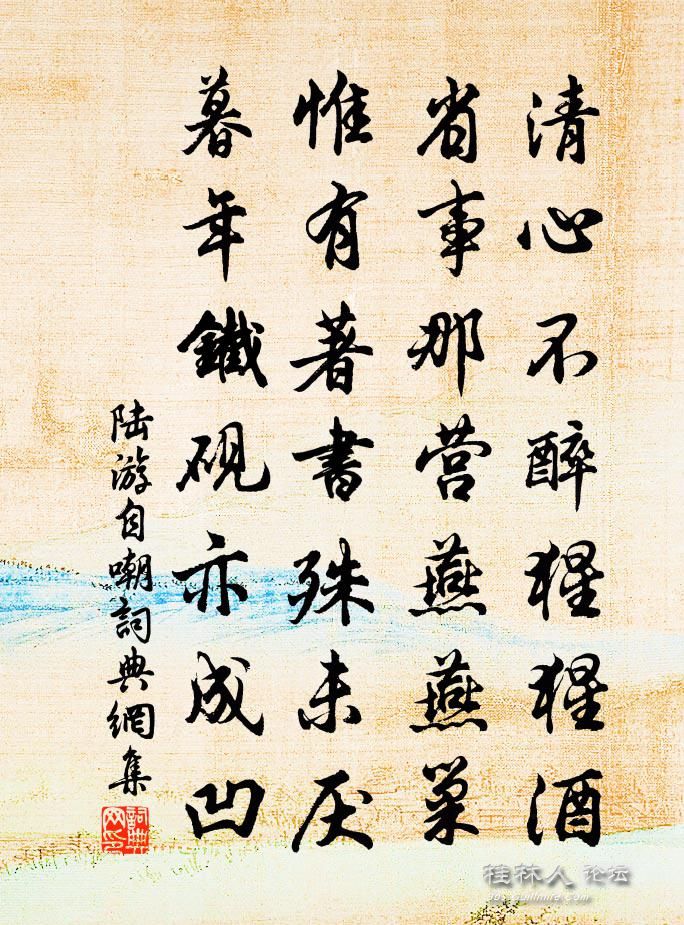 清心不醉猩猩酒
省事那营燕燕巢
惟有著書殊未厌
暮年鐵砚亦成凹
陆游自嘲詞典網集
桂林人论坛